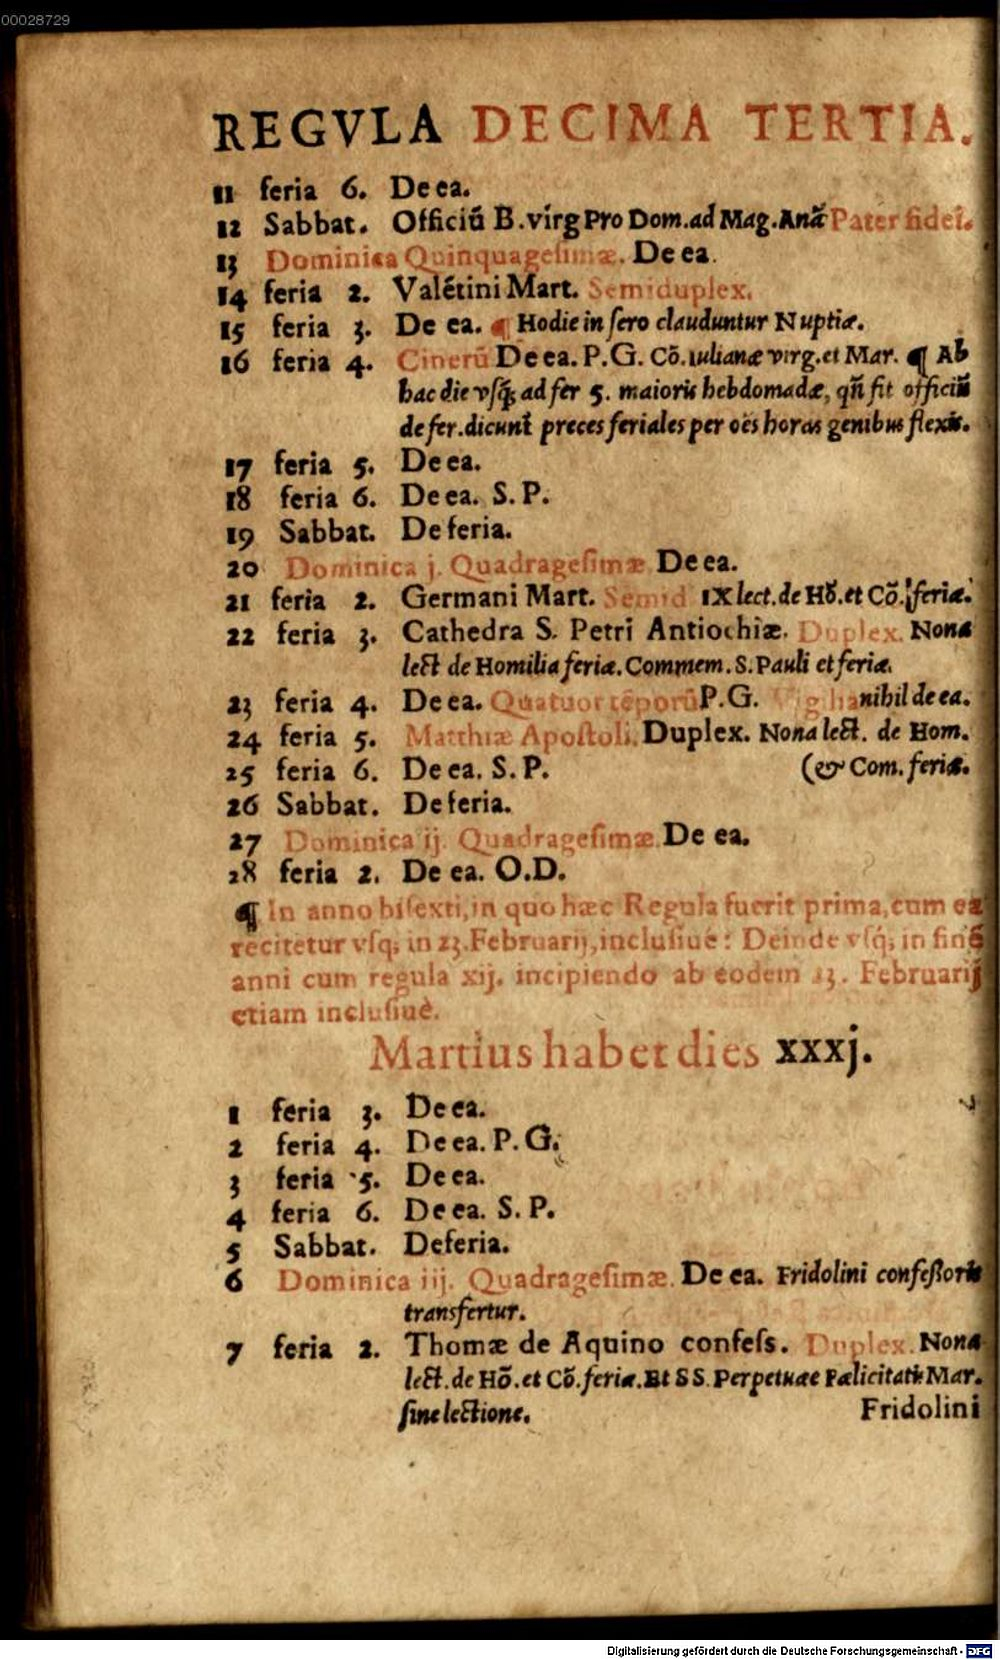 00028729
REGVLA DECIMA TERTIA.
11 feria 6. De ea.
12 Sabbat. Officiũ B.virg Pro Dom.ad Mag.Anã Pater fidei.
13 Dominica Quinquagesimæ. De ea.
14 feria 2. Valẽtini Mart. Semiduplex.
15 feria 3. De ea. ¶ Hodie in sero clauduntur Nuptiæ.
16 feria 4. Cinerũ De ea. P.G. Cõ. Iulianæ virg. et Mar. ¶ Ab
hac die vsq; ad fer 5. maioris hebdomadæ, qñ fit officiũ
de fer. dicunt preces feriales per oẽs horas genibus flexis.
17 feria 5. De ea.
18 feria 6. De ea. S. P.
19 Sabbat. De feria.
20 Dominica j. Quadragesimæ De ea.
21 feria 2. Germani Mart. Semid IX lect. de Hõ. et Cõ. feriæ.
22 feria 3. Cathedra S. Petri Antiochiæ. Duplex. Nona
lect de Homilia feriæ. Commem. S. Pauli et feriæ.
23 feria 4. De ea. Quatuor tẽporũ P.G. Vigilia nihil de ea.
24 feria 5. Matthiæ Apostoli. Duplex. Nona lect. de Hom.
25 feria 6. De ea. S. P. (& Com. feriæ.
26 Sabbat. De feria.
27 Dominica ij. Quadragesimæ. De ea.
28 feria 2. De ea. O.D.
¶ In anno bisexti, in quo hæc Regula fuerit prima, cum ea
recitetur vsq; in 23. Februarij, inclusiuè: Deinde vsq; in finẽ
anni cum regula xij. incipiendo ab eodem 23. Februarij
etiam inclusiuè.
Martius habet dies xxxj.
1 feria 3. De ea.
2 feria 4. De ea. P. G.
3 feria 5. De ea.
4 feria 6. De ea. S. P.
5 Sabbat. De feria.
6 Dominica iij. Quadragesimæ. De ea. Fridolini confessoris
transfertur.
7 feria 2. Thomæ de Aquino confess. Duplex. Nona
lect. de Hõ. et Cõ. feriæ. Et SS. Perpetuae Fælicitatis Mar.
sine lectione. Fridolini
Digitalisierung gefördert durch die Deutsche Forschungsgemeinschaft - DFG